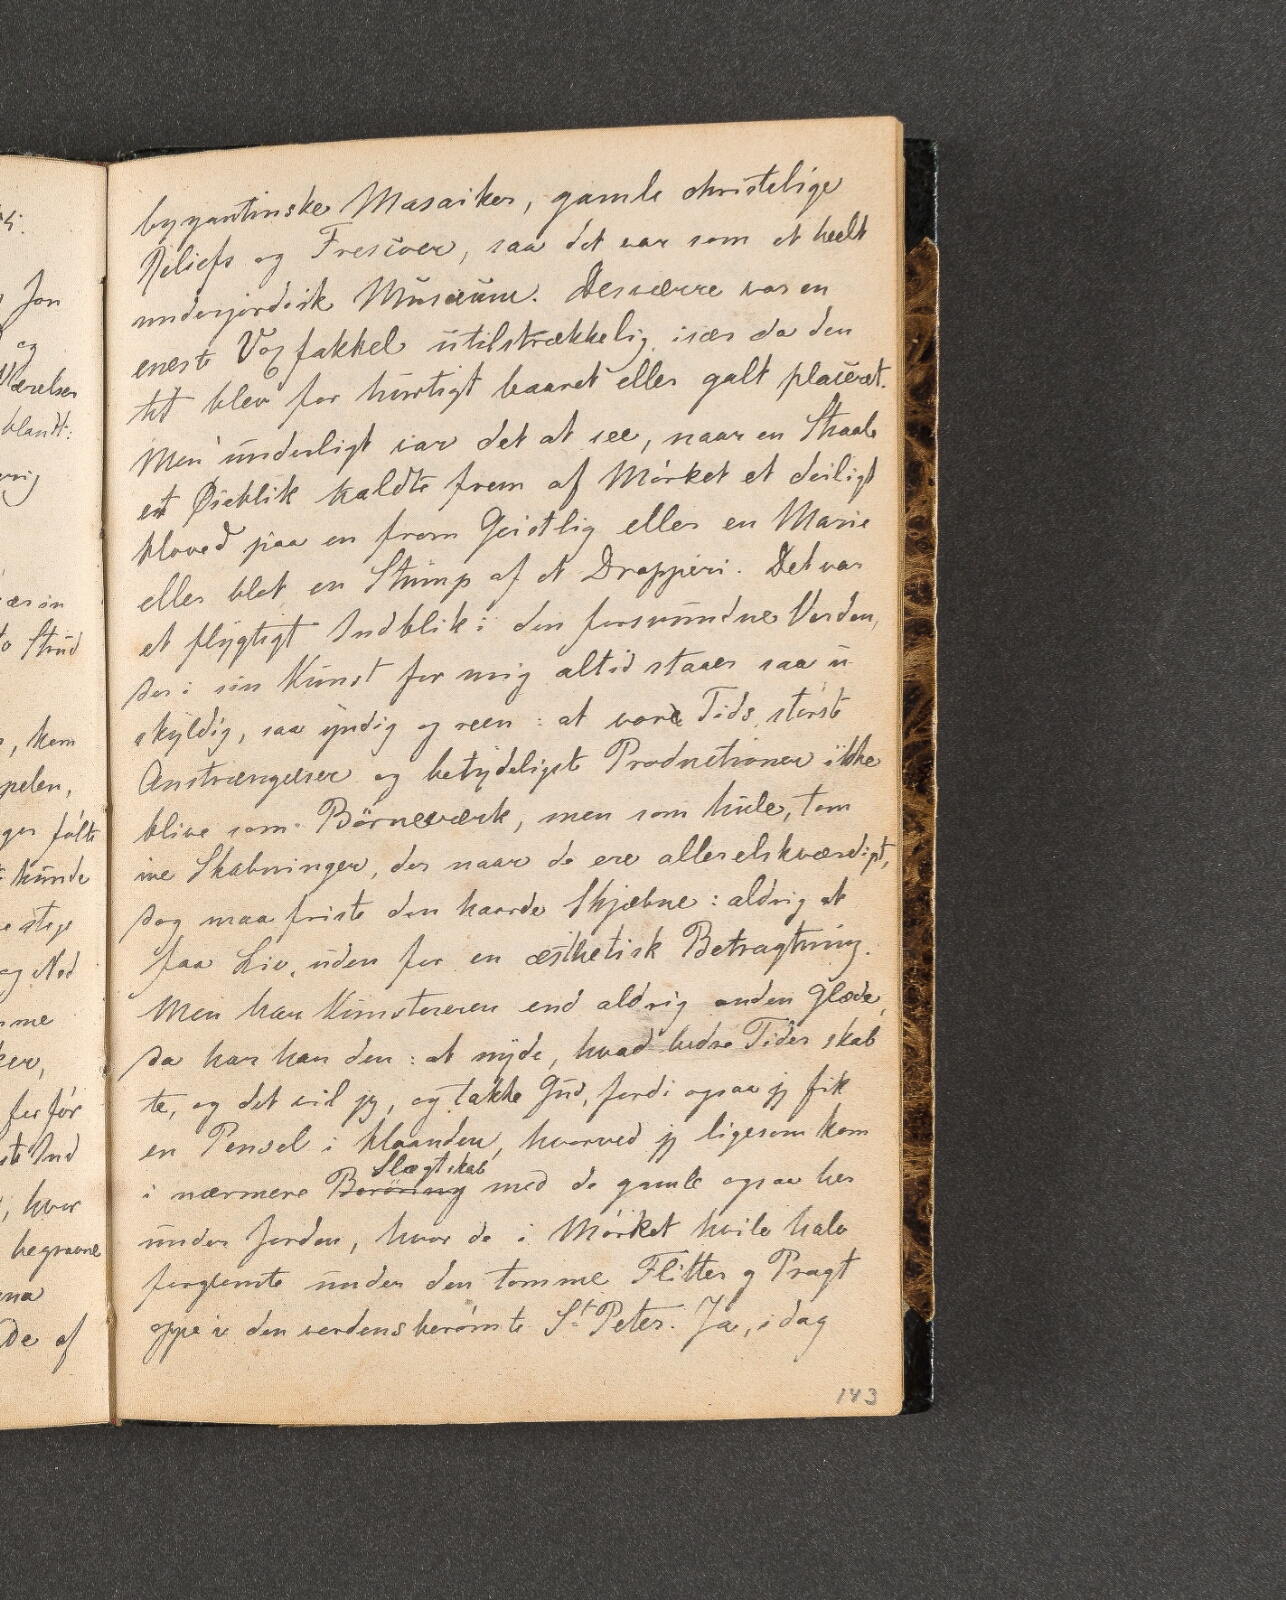 byzantinske Masaiker, gamle christelige
Reliefs og Frescoer, saa det var som et heelt
underjordisk Musæum. Desværre var en
eneste Voxfakkel utilstrækkelig, især da den
tit blev for hurtigt baaret eller galt placeret.
Men underligt var det at see, naar en Straale
et Øieblik kaldte frem af Mörket et deiligt
Hoved paa en from Geistlig eller en Marie
eller blot en Stump af et Drapperi. Det var
et flygtigt Indblik i den forsvundne Verden,
der i sin Kunst for mig altid staaer saa u
skyldig, saa yndig og reen : at vore Tids störste
Anstrængelser og betydeligste Productioner ikke
blive som Börneværk, men som hule, tom
me Skabninger, der naar de ere allerelskværdigst,
dog maa friste den haarde Skjæbne : aldrig at
faa Liv, uden for en æsthetisk Betragtning.
Men har Kunstneren end aldrig anden Glæde,
da har han den : at nyde, hvad bedre Tider skab
te, og det vil jeg, og takke Gud, fordi ogsaa jeg fik
en Pensel i Haanden, hvorved jeg ligesom kom
Slægtskab
i nærmere Beröring med de gamle ogsaa her
under Jorden, hvor de i Mörket hvile halv
forglemte under den tomme Flitter og Pragt
oppe i den verdensberömte St. Peter. Ja, idag
143
og
Jon
Værelser
blandt:
kom
pelen,
fölte
kunde
hvor
begravne
De af